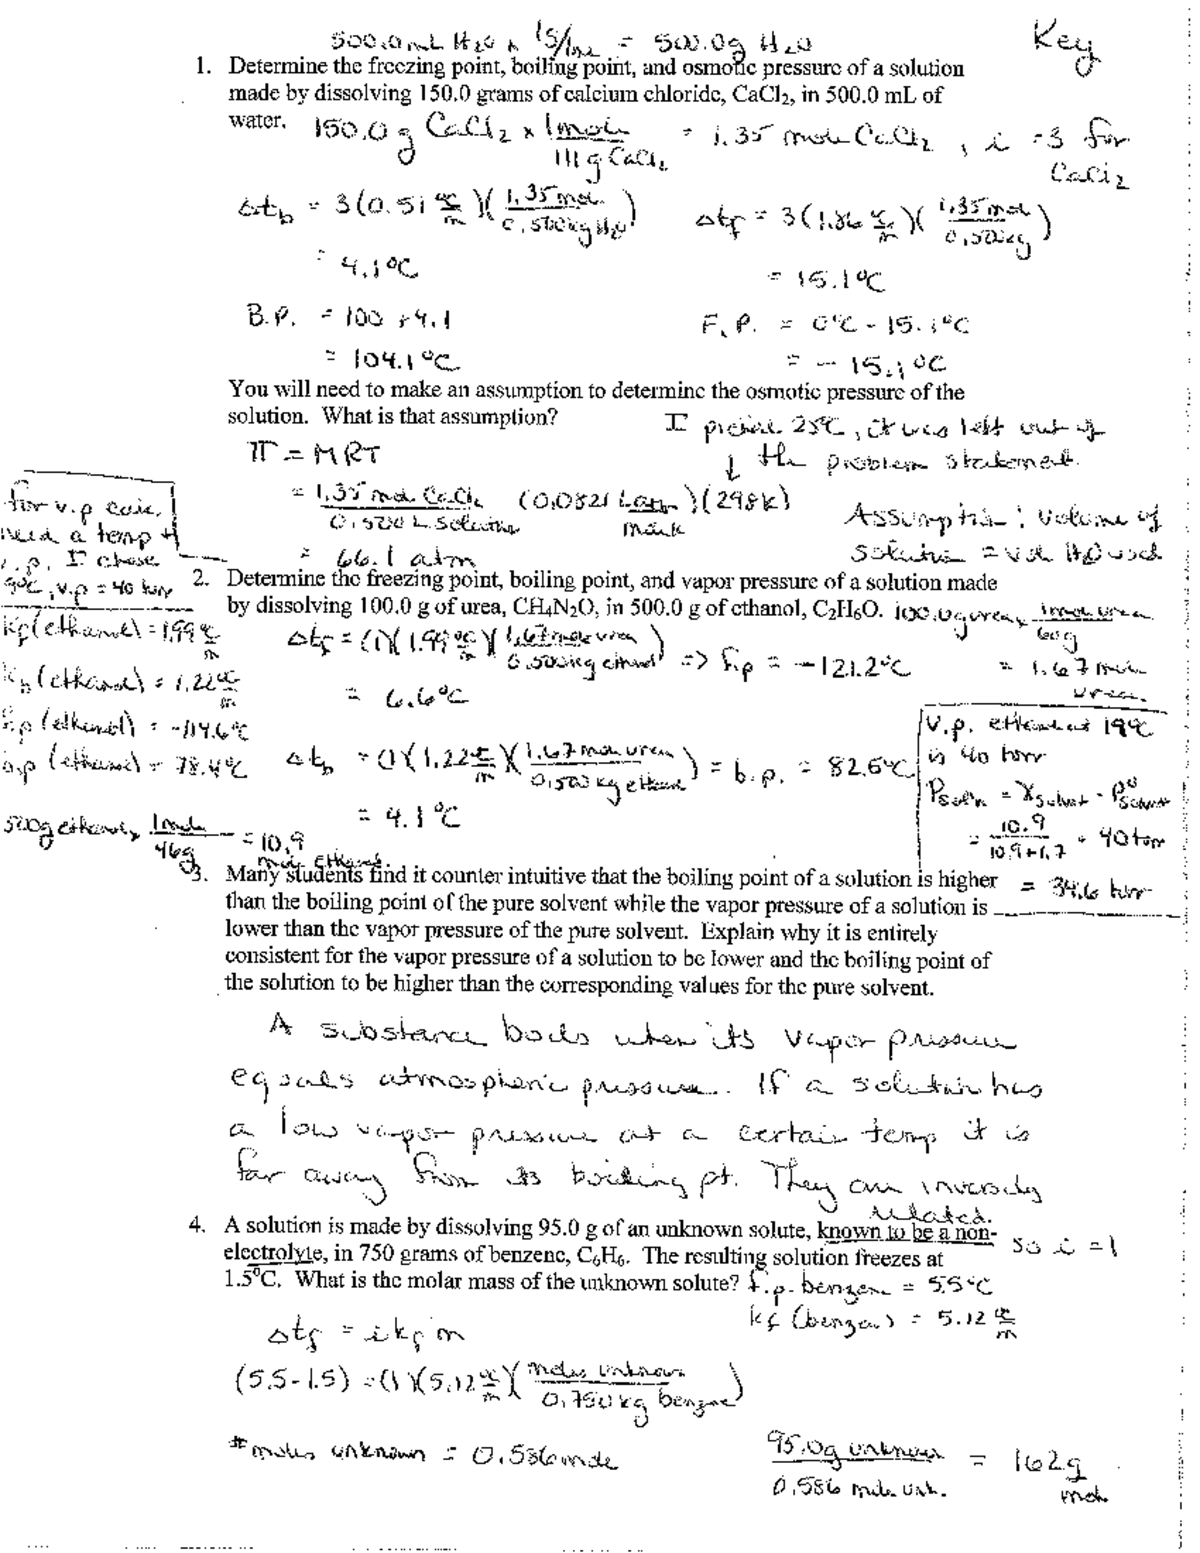 500.0mL H2O × 1g/1mL = 500.0g H2O
Key
1. Determine the freezing point, boiling point, and osmotic pressure of a solution
made by dissolving 150.0 grams of calcium chloride, CaCl₂, in 500.0 mL of
water. 150.0 g CaCl2 × 1mole/111 g CaCl2 = 1.35 mole CaCl2, i = 3 for
CaCl2
Δtb = 3(0.51 °C/m)(1.35 mol/0.500kg H2O)
Δtf = 3(1.86 °C/m)(1.35 mol/0.500kg)
= 4.1°C
= 15.1°C
B.P. = 100 + 4.1
F.P. = 0°C - 15.1°C
= 104.1°C
= - 15.1°C
You will need to make an assumption to determine the osmotic pressure of the
solution. What is that assumption?
I picked 25°C, it was left out of
↓ the problem statement.
π = MRT
= 1.35 mol CaCl2/0.500 L solution (0.0821 L atm/mol K)(298K)
Assumption: Volume of
solution = vol H2O used
= 66.1 atm
for v.p calc.
need a temp +
v.p. I chose
19°C, v.p = 40 torr
2. Determine the freezing point, boiling point, and vapor pressure of a solution made
by dissolving 100.0 g of urea, CH₄N₂O, in 500.0 g of ethanol, C₂H₆O. 100.0g urea × 1mol urea/60g
= 1.67 mol
urea.
Kf (ethanol) = 1.99 °C/m
Kb (ethanol) = 1.22 °C/m
f.p (ethanol) = -114.6°C
b.p (ethanol) = 78.4°C
500g ethanol × 1mole/46g = 10.9
mol ethanol
Δtf = (1)(1.99 °C/m)(1.67 mole urea/0.500kg ethanol) => f.p = -121.2°C
= 6.6°C
Δtb = (1)(1.22 °C/m)(1.67 mol urea/0.500 kg ethanol) = b.p. = 82.5°C
= 4.1°C
V.p. ethanol at 19°C
is 40 torr
Psoln = Xsolvent · P°solvent
= 10.9/10.9+1.7 · 40 torr
= 34.6 torr
3. Many students find it counter intuitive that the boiling point of a solution is higher
than the boiling point of the pure solvent while the vapor pressure of a solution is
lower than the vapor pressure of the pure solvent. Explain why it is entirely
consistent for the vapor pressure of a solution to be lower and the boiling point of
the solution to be higher than the corresponding values for the pure solvent.
A substance boils when its vapor pressure
equals atmospheric pressure. If a solution has
a low vapor pressure at a certain temp it is
far away from its boiling pt. They are inversely
related.
4. A solution is made by dissolving 95.0 g of an unknown solute, known to be a non-
electrolyte, in 750 grams of benzene, C₆H₆. The resulting solution freezes at
so i = 1
1.5°C. What is the molar mass of the unknown solute? f.p. benzene = 5.5°C
kf (benzene) = 5.12 °C/m
Δtf = i kf m
(5.5-1.5) = (1)(5.12 °C/m)(moles unknown/0.750kg benzene)
# moles unknown = 0.586 mole
95.0g unknown/0.586 mole unk. = 162 g/mol